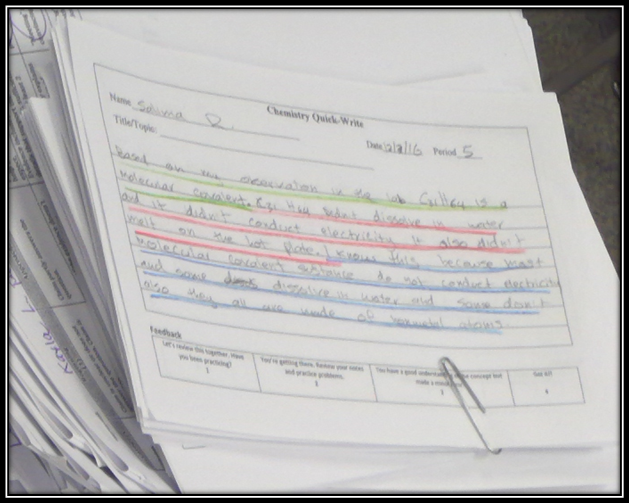 Chemistry Quick-Write
Name Salima R.
Title/Topic:
Date 2/8/16 Period 5
Based on my observation in the lab is a
molecular covalent. didnt dissolve in water
and it didn't conduct electricity it also didn't
melt on the hot plate. I know this because most
molecular covalent substance do not conduct electricity
and some dissolve in water and some don't
also they all are made of nonmetal atoms.
Feedback
Let's review this together. Have
you been practicing?
1
You're getting there. Review your notes
and practice problems.
You have a good understanding of the concept but
made a
Got it!!
4
Kayla